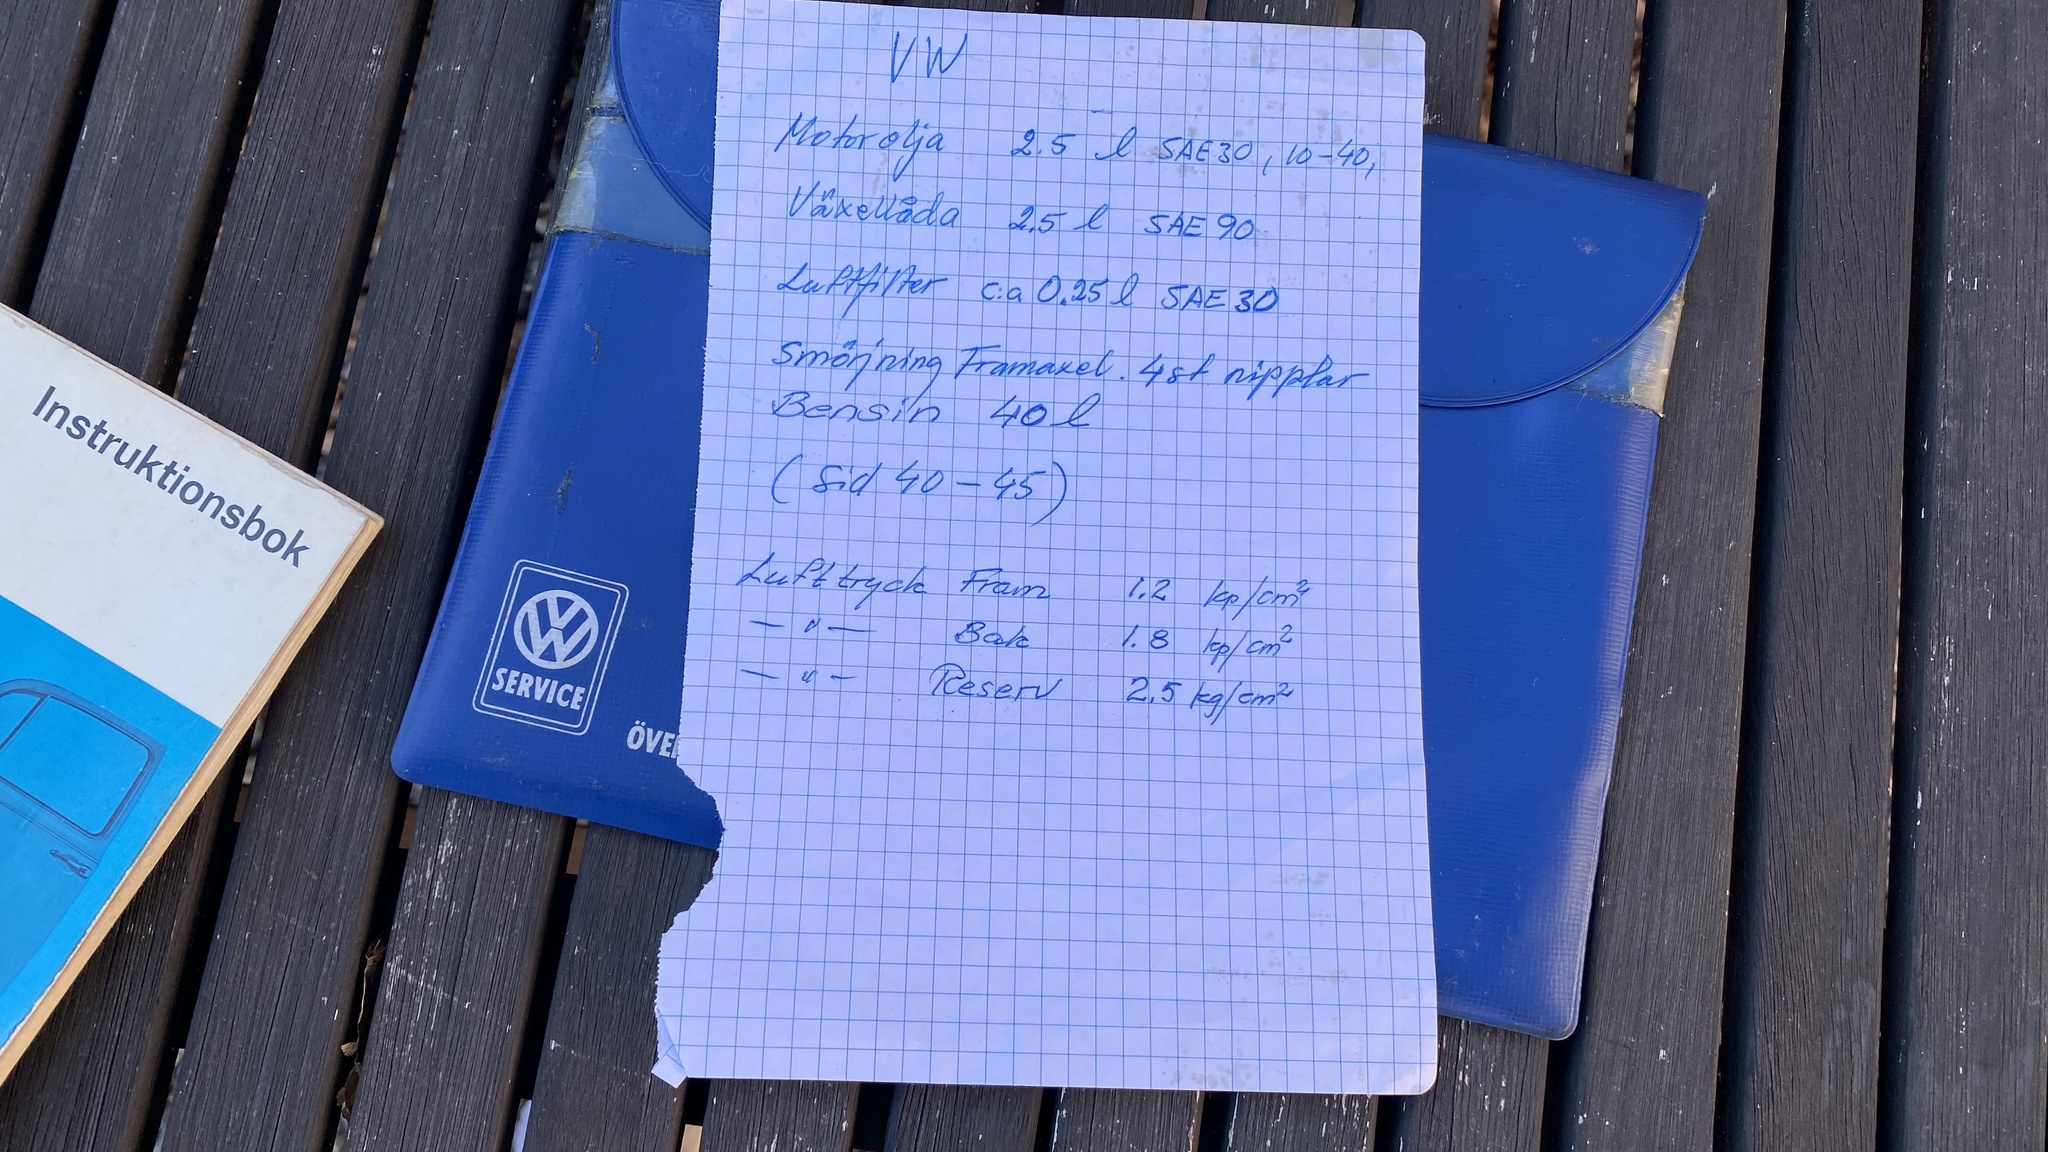 VW
Motorolja 2.5 l SAE30, 10-40,
Växellåda 2.5 l SAE 90
Luftfilter c:a 0.25 l SAE 30
Smörjning Framaxel. 4 st nipplar
Bensin 40 l
(Sid 40-45)
Lufttryck Fram 1.2 kp/cm²
—"— Bak 1.8 kp/cm²
—"— Reserv 2.5 kg/cm²
Instruktionsbok
VW
SERVICE